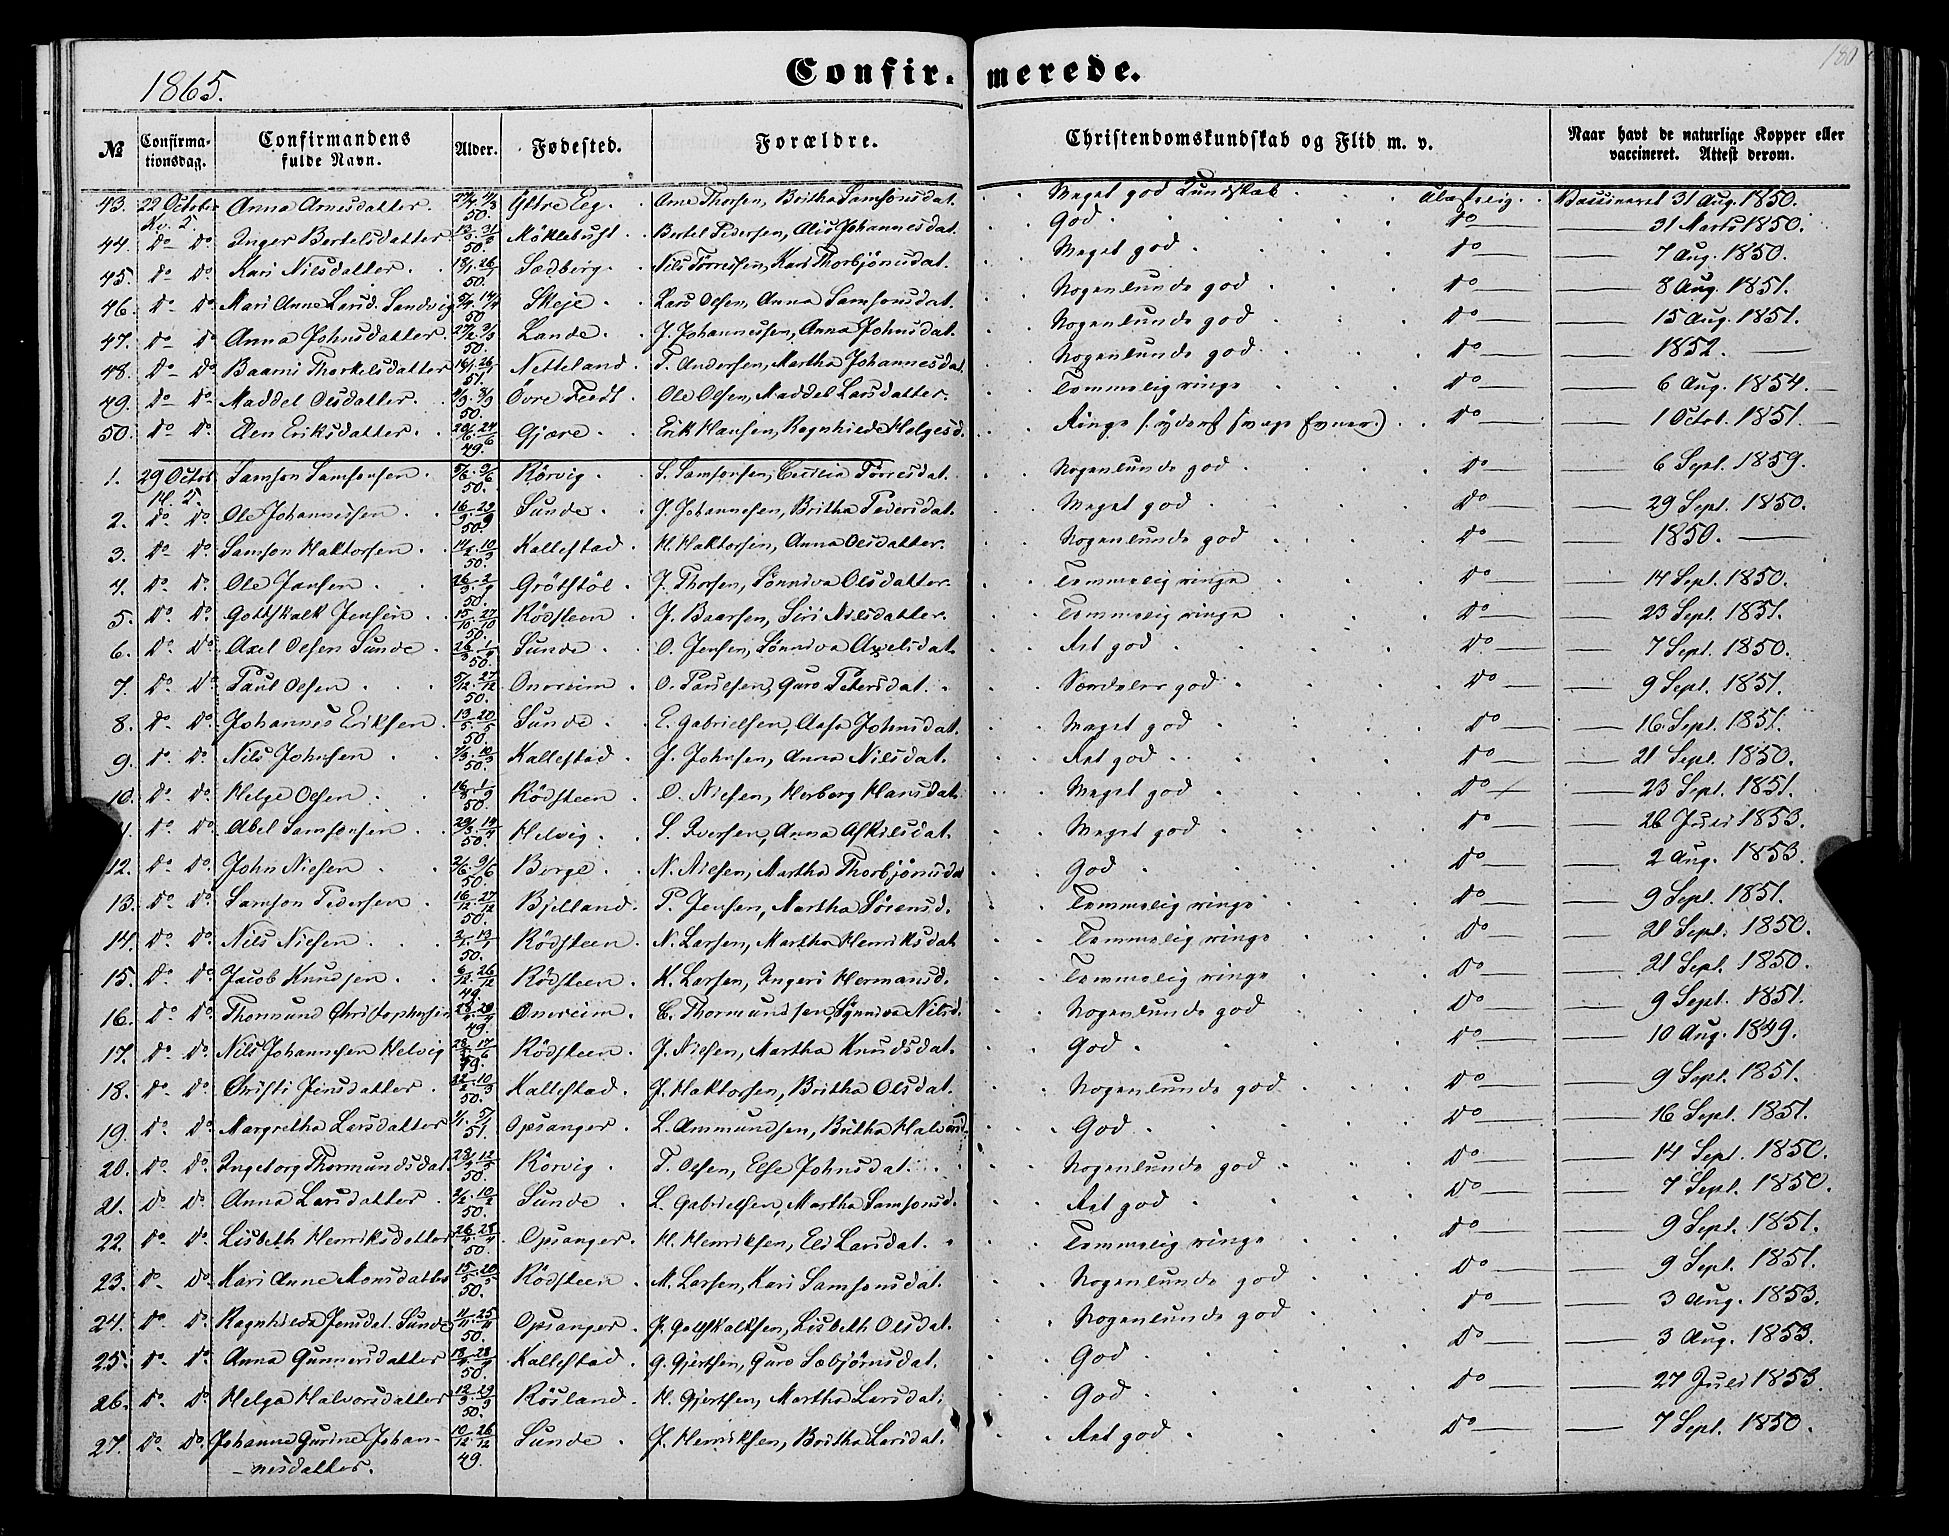 180
1865.
Confirmerede.
№ Confirmationsdag. Confirmandens fulde Navn. Alder. Fødested. Forældre. Christendomskundskab og Flid m. v. Naar havt de naturlige Kopper eller vaccineret. Attest derom.
43. 22 Octobr Anna Arnesdatter. 50. Yttre Eeg. Arne Thorsen, Britha Samsonsdat. Meget god Kundskab Vaccineret 31 Aug. 1850.
44. Do Do Inger Bertelsdatter 50. Möklebust. Bertel Pedersen, Alis Johannesdat. God Do 31 Marts 1850.
45. Do Do Kari Nilsdatter. 50. Sædberg. Nils Torressen, Kari Thorbjönsdat. Meget god Do 7 Aug. 1850.
46. Do Do Mari Anne Larsd. Sandvig 50 Skeje. Lars Olsen, Anna Samsonsdat. Nogenlunde god Do 8 Aug. 1851.
47. Do Do Anna Johnsdatter. 50. Lande. J. Johannessen, Anna Johnsdat. Nogenlunde god Do 15 Aug. 1851.
48. Do Do Baarni Thorkelsdatter 51. Netteland. T. Andersen, Martha Johannesdat. Nogenlunde god Do 1852.
49. Do Do Maddel Olsdatter. 50. Övre Feedt. Ole Olsen, Maddel Larsdatter. Temmelig ringe Do 6 Aug. 1854.
50. Do Do Elen Eriksdatter. 49. Gjære. Erik Hansen, Ragnhilde Helgesd. Ringe (: yderst svage Evner.) Do 1 Octob. 1851.
1. 29 Octob Samson Samsonsen. 50. Rörvig. S. Samsonsen, Cecilia Torresdat. Nogenlunde god Do 6 Sept. 1859.
2. Do Do Ole Johannessen. 50 Sunde. J. Johannesen, Britha Pedersdat. Meget god Do 29 Sept. 1850.
3. Do Do Samson Haktorsen. 50. Kallestad. H. Haktorsen, Anna Olsdatter. Nogenlunde god Do 1850.
4. Do Do Ole Jansen. 50. Grötstöl. J. Thorsen, Sönniva Olsdatter. Temmelig ringe Do 14 Sept. 1850.
5. Do Do Gottskalk Jensen. 50. Rödsteen. J. Baarsen, Siri Nilsdatter. Temmelig ringe Do 23 Sept. 1851.
6. Do Do Axel Olsen Sunde. 50. Sunde. O. Jensen, Sönniva Axelsdat. Ret god Do 7 Sept. 1850.
7. Do Do Paul Olsen 50. Onereim. O. Paulsen, Guro Petersdat. Særdeles god Do 9 Sept. 1851.
8. Do Do Johannes Eriksen. 50. Sunde. E. Gabrielsen, Aasa Johnsdat. Meget god Do 16 Sept. 1851.
9. Do Do Nils Johnsen 50. Kallestad. J. Johnsen, Anna Nilsdat. Ret god Do 21 Sept. 1850.
10. Do Do Helge Olsen. 50. Rödsteen. O. Nilsen, Herborg Hansdat. Meget god Do 23 Sept. 1851.
11. Do Do Abel Samsonsen. 50. Helvig. S. Iversen, Anna Askilsdat. Meget god Do 26 Juli 1853.
12. Do Do John Nilsen 50. Berge. N. Nilsen, Martha Thorbjönsdat God Do 2 Aug. 1853.
13. Do Do Samson Pedersen. 50. Bjelland. P. Jensen, Martha Sörensd. Temmelig ringe Do 9 Sept. 1851.
14. Do Do Nils Nilsen 50. Rödsteen. N. Larsen, Martha Henriksdat Temmelig ringe Do 21 Sept. 1850.
15. Do Do Jacob Knudsen 49. Rödsteen. K. Larsen, Ingeri Hermansd. Temmelig ringe Do 21 Sept. 1850.
16. Do Do Thormund Christophersen 49. Onereim. C. Thormundsen, Synniva Nilsd. Nogenlunde god Do 9 Sept. 1851.
17. Do Do Nils Johannesen Helvig 49. Rödsteen. J. Nilsen, Martha Knudsdat. God Do 10 Aug. 1849.
18. Do Do Christi Jensdatter. 50. Kallestad. J. Haktorsen, Britha Olsdat. Nogenlunde god Do 9 Sept. 1851.
19. Do Do Margretha Larsdatter 51. Opsanger. L. Ammundsen, Britha Halvorsd. God Do 16 Sept. 1851.
20. Do Do Ingeborg Thormundsdat. 50. Rörvig. T. Olsen, Else Johnsdat. Nogenlunde god Do 14 Sept. 1850.
21. Do Do Anna Larsdatter. 50. Sunde. L. Gabrielsen, Martha Samsonsd. Ret god Do 7 Sept. 1850.
22. Do Do Lisbeth Henriksdatter 50. Opsanger. H. Henriksen, Eli Larsdat. Temmelig ringe Do 9 Sept. 1851.
23. Do Do Kari Anne Monsdatter 50. Rödsteen. M. Larsen, Kari Samsonsdat. Nogenlunde god Do 9 Sept. 1851.
24. Do Do Ragnhilde Jensdat. Sunde 50. Opsanger. J. Gottskalksen, Lisbeth Olsdat. Nogenlunde god Do 3 Aug. 1853.
25. Do Do Anna Gunnersdatter 50. Kallestad. G. Gjertsen, Guro Sæbjörnsdat. God Do 3 Aug. 1853.
26. Do Do Helga Halvorsdatter 50. Rösland. H. Gjertsen, Martha Larsdat. God Do 27 Juli 1853.
27. Do Do Johanne Gurine Johan- 49. Sunde. J. Henriksen, Britha Larsdat. Ret god Do 7 Sept. 1850.
-nesdatter.